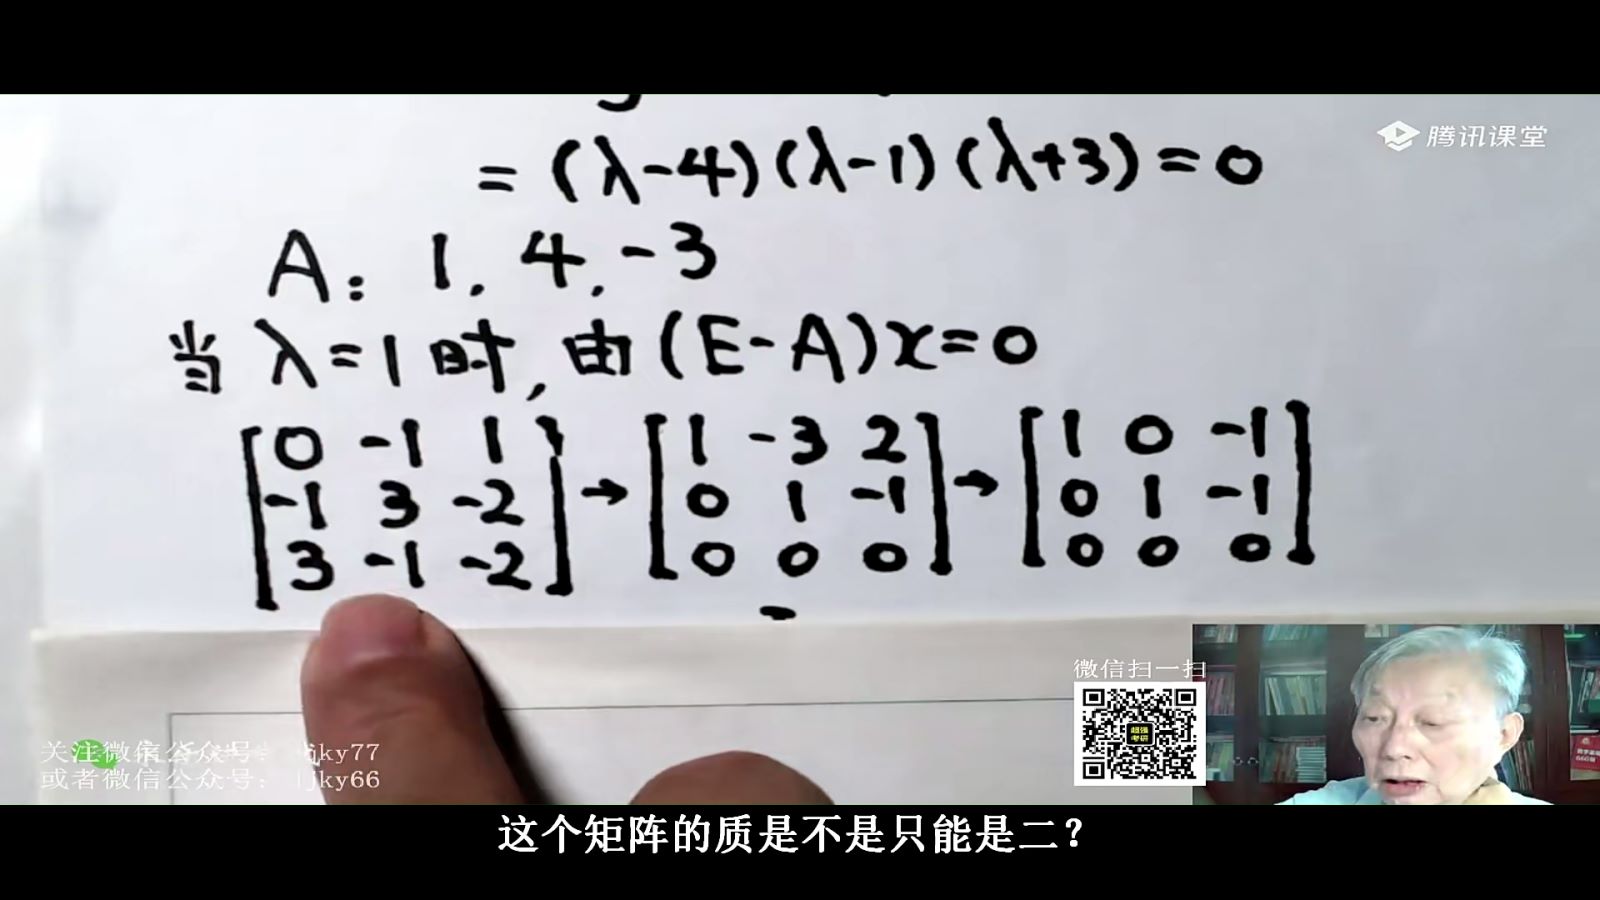 = (λ-4)(λ-1)(λ+3)=0
腾讯课堂
A: 1, 4, -3
当 λ=1时, 由(E-A)x=0
[0 -1 1] → [1 -3 2] → [1 0 -1]
[-1 3 -2] [0 1 -1] [0 1 -1]
[3 -1 -2] [0 0 0] [0 0 0]
微信扫一扫
关注微信公众号: jky77
或者微信公众号: jky66
这个矩阵的质是不是只能是二?